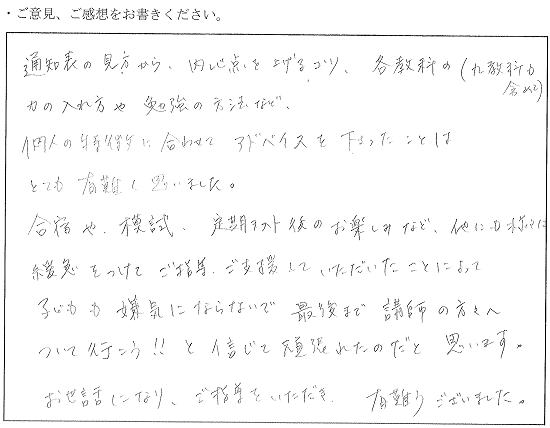 ・ご意見、ご感想をお書きください。
通知表の見方から、内心点を上げるコツ、各教科の(九教科も含めて)
力の入れ方や勉強の方法など、
個人の特徴に合わせてアドバイスを下さったことは
とても有難く思いました。
合宿や、模試、定期テスト後のお楽しみなど、他にも様々に
緩急をつけてご指導、ご支援していただいたことによって
子どもも嫌気にならないで最後まで講師の方々へ
ついて行こう!!と信じて頑張れたのだと思います。
お世話になり、ご指導をいただき、有難うございました。